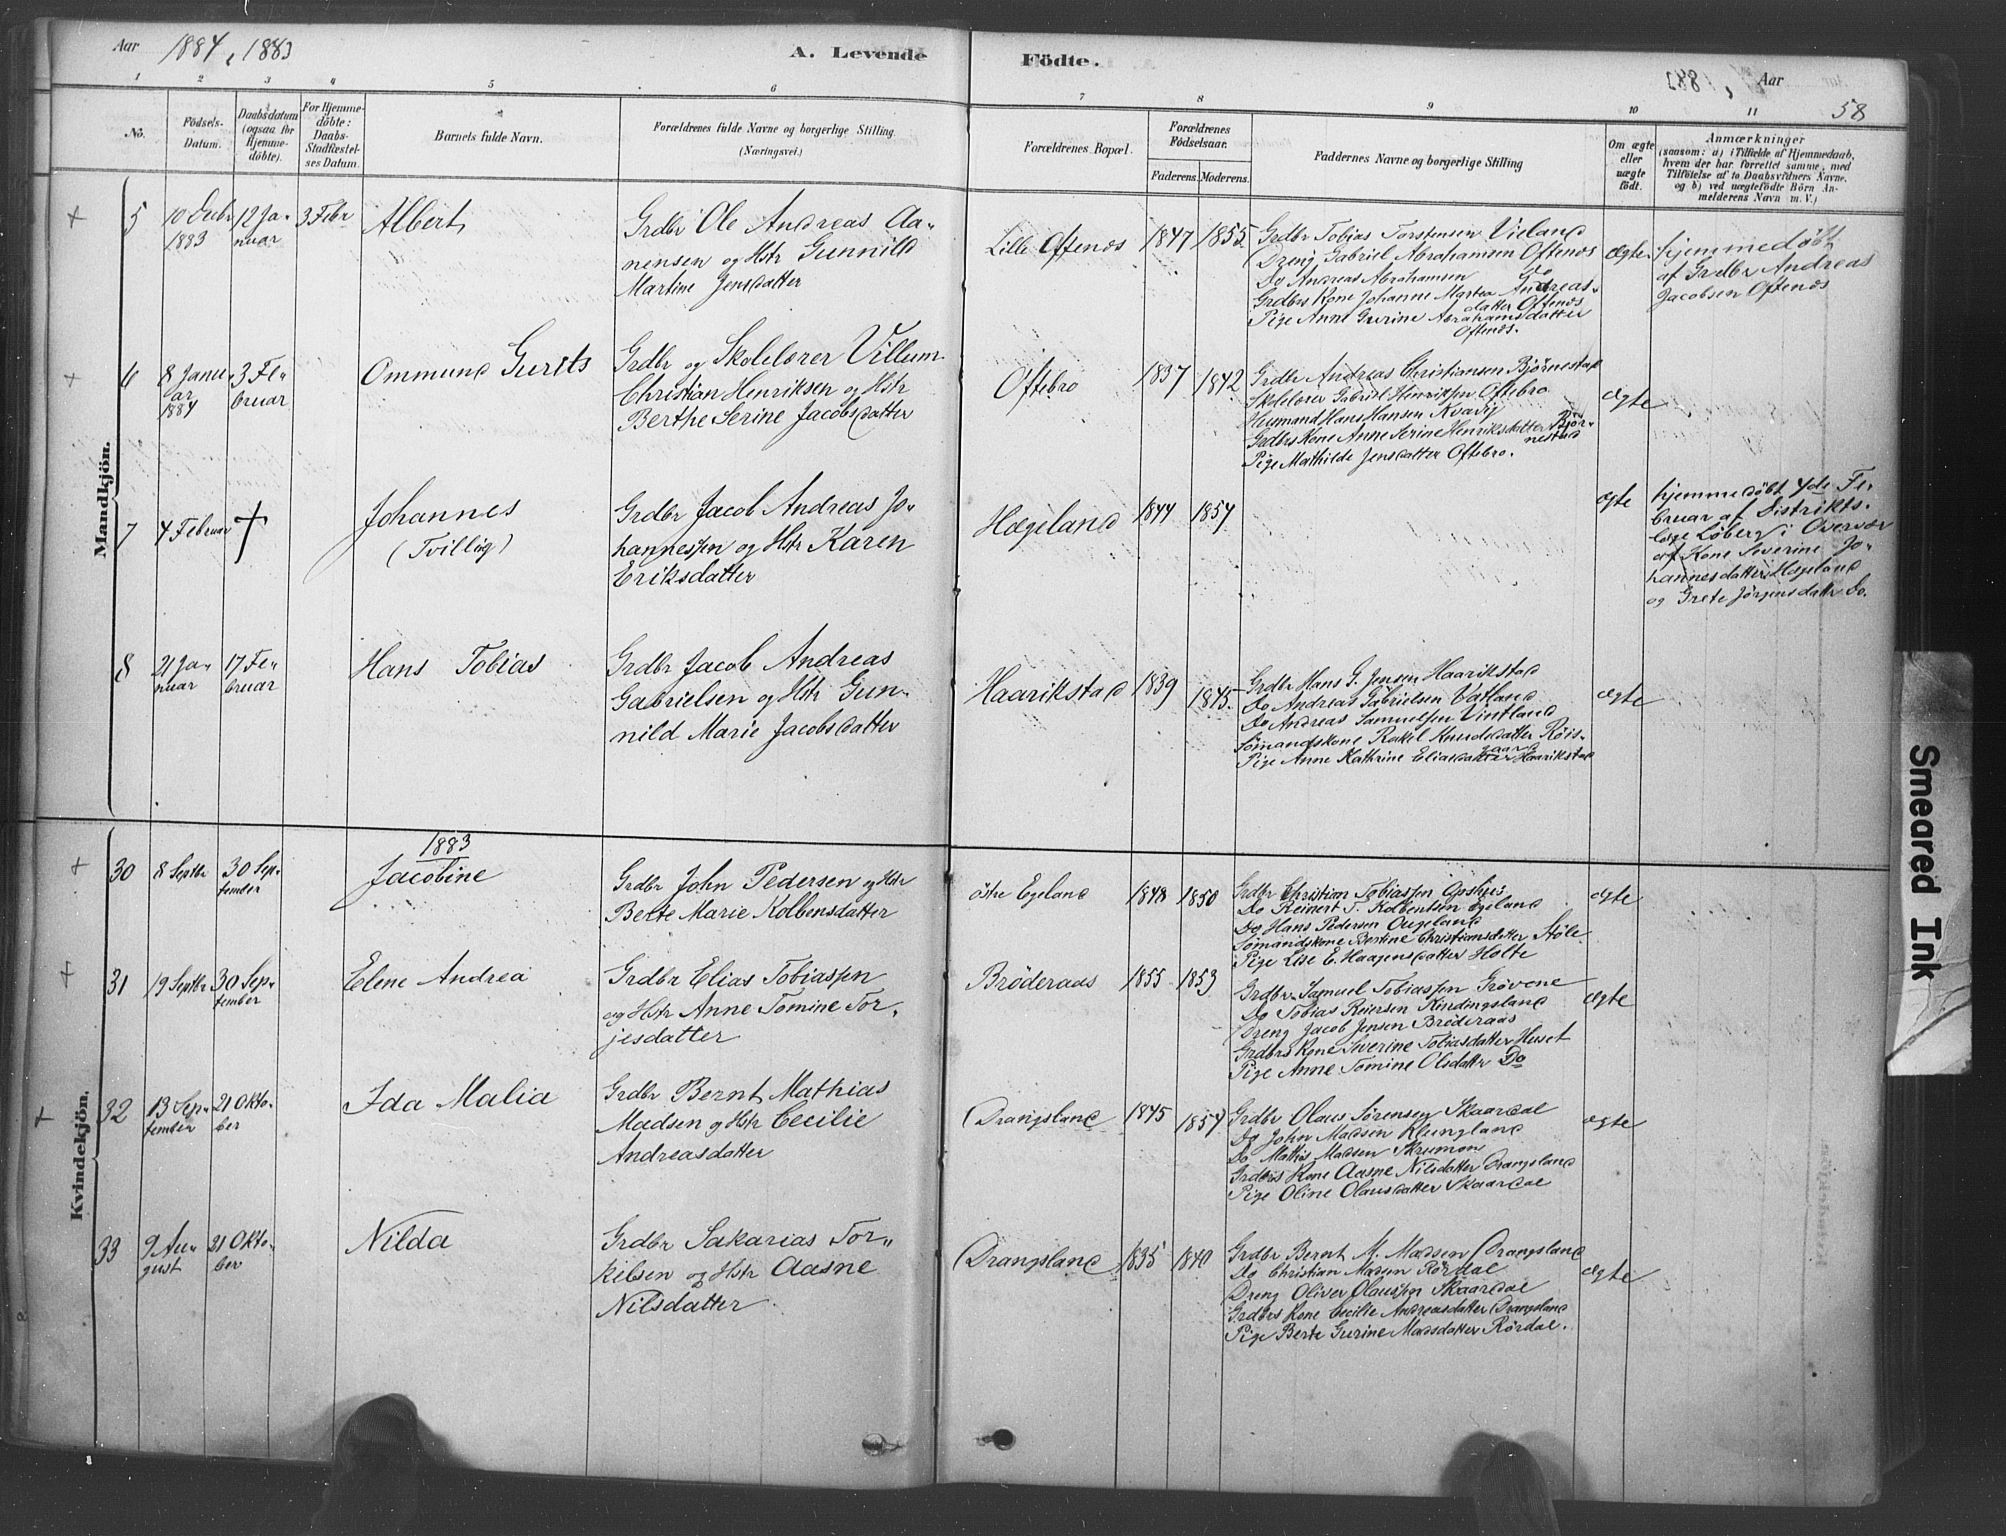 Aar 1884, 1883
A. Levende Födte.
Aar
58
1 2 3 4 5 6 7 8 9 10 11
No.
Födsels-
Datum.
Daabsdatum
(ogsaa for
Hjemme-
döbte).
For Hjemme-
döbte:
Daabs-
Stadfæstel-
ses Datum.
Barnets fulde Navn.
Forældrenes fulde Navne og borgerlige Stilling.
(Næringsvei.)
Forældrenes Bopæl.
Forældrenes
Födselsaar.
Faderens. Moderens.
Faddernes Navne og borgerlige Stilling
Om ægte
eller
uægte
födt.
Anmærkninger
(saasom: a) i Tilfælde af Hjemmedaab,
hvem der har forrettet samme, med
Tilföielse af to Daabsvidners Navne.
og b) ved uægtefödte Börn An-
melderens Navn m. V.)
Mandkjön.
5
10 Decbr
1883
12 Ja-
nuar
3 Febr
Albert
Grdbr Ole Andreas Aa-
nensen og Hstr Gunnild
Martine Jensdatter
Lille Oftenæs
1847 1855
Grdbr Tobias Torstensen Vieland
Dreng Gabriel Abrahamsen Oftenæs
Do Andreas Abrahamsen do
Grdbrs Kone Johanne Martea Andreas-
datter Oftenæs
Pige Anne Gurine Abrahamsdatter
Oftenæs.
Ægte
hjemmedøbt
af Grdbr Andreas
Jacobsen Oftenæs
6
8 Janu-
ar
1884
3 Fe-
bruar
Ommund Gerits
Grdbr og Skolelærer Villum
Christian Henriksen og Hstr
Berthe Serine Jacobsdatter
Oftebro
1837 1842
Grdbr Andreas Christiansen Bjørnestad
Skolelærer Gabriel Henriksen Oftebro
Husmand Hans Hansen Kvavig
Grdbrs Kone Anne Serine Henriksdatter Bjør-
nestad
Pige Mathilde Jensdatter Oftebro.
ægte
7
4 Februar
†
Johannes
(Tvilling)
Grdbr Jacob Andreas Jo-
hannessen og Hstr Karen
Eriksdatter
Hægeland
1844 1854
ægte
hjemmedøbt 4de Fe-
bruar af Distrikts-
læge Løberg i Overvær
af Kone Severine Jo-
hannesdatter Hægeland
og Grete Jörgensdattr Do.
8
21 Ja-
nuar
17 Fe-
bruar
Hans Tobias
Grdbr Jacob Andreas
Gabrielsen og Hstr Gun-
nild Marie Jacobsdatter
Haarikstad
1839 1845
Grdbr Hans G. Jensen Haarikstad
Do Andreas Gabrielsen Vatland
Do Andreas Samuelsen Vintland
Sömandskone Rakel Knudsdatter Röis-
gaard
Pige Anne Kathrine Eliasdatter Haarikstad
ægte
Kvindekjön.
1883
30
8 Septbr
30 Sep-
tember
Jacobine
Grdbr John Pedersen og Hstr
Berte Marie Kolbensdatter
östre Egeland
1848 1850
Grdbr Christian Tobiassen Aashus
Do Reinert T. Kolbentsen Egeland
Do Hans Pedersen Augeland
Sömandskone Bertine Christiansdatter Støle
Pige Lise E. Haagensdatter Holte
ægte
31
19 Septbr
30 Sep-
tember
Elene Andrea
Grdbr Elias Tobiassen
og Hstr Anne Tomine Tor-
jesdatter
Bröderaas
1855 1853
Grdbr Samuel Tobiassen Grövene
Do Tobias Reiersen Kindingsland
Dreng Jacob Jensen Bröderaas
Grdbrs Kone Severine Tobiasdatter Huset
Pige Anne Tomine Olsdatter Do
ægte
32
13 Sep-
tember
21 Okto-
ber
Ida Malia
Grdbr Bernt Mathias
Madsen og Hstr Cecilie
Andreasdatter
Drangsland
1845 1854
Grdbr Olaus Sørensen Skaardal
Do John Madsen Klungland
Do Mathis Madsen Skrumon
Grdbrs Kone Aasne Nilsdatter Drangsland
Pige Oline Olausdatter Skaardal
ægte
33
9 Au-
gust
21 Okto-
ber
Nilda
Grdbr Sakarias Tor-
kelsen og Hstr Aasne
Nilsdatter
Drangsland
1835 1840
Grdbr Bernt M. Madsen Drangsland
Do Christian Madsen Rördal
Dreng Oliver Olaussen Skaardal
Grdbrs Kone Cecilie Andreasdatter Drangsland
Pige Berte Gurine Madsdatter Rördal.
ægte
Smeared Ink